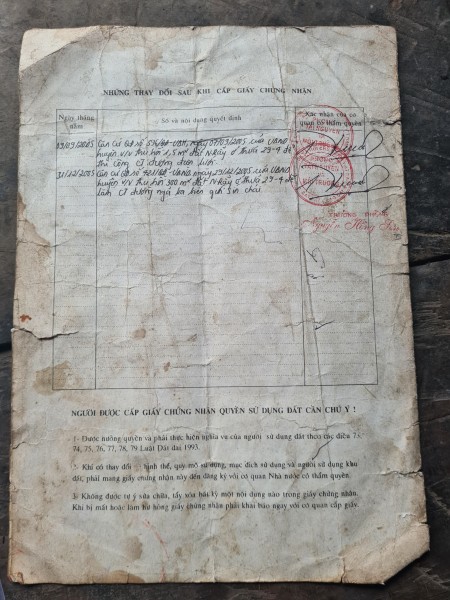 NHỮNG THAY ĐỔI SAU KHI CẤP GIẤY CHỨNG NHẬN
Ngày tháng năm
Số và nội dung quyết định
Xác nhận của cơ quan có thẩm quyền
09/03/2005 Căn cứ QĐ số ngày 07/03/2005 của UBND
huyện V/v thu hồi 1,5m² đất Nrẫy ở thửa 29-4 để
thi công CT đường điện
31/12/2005 Căn cứ QĐ số ngày 29/12/2005 của UBND
huyện V/v thu hồi 300m² đất Nrẫy ở thửa 29-4 để
làm CT đường ngã ba
TRƯỞNG PHÒNG
Nguyễn Hồng
NGƯỜI ĐƯỢC CẤP GIẤY CHỨNG NHẬN QUYỀN SỬ DỤNG ĐẤT CẦN CHÚ Ý !
1- Được hưởng quyền và phải thực hiện nghĩa vụ của người sử dụng đất theo các điều 73,
74, 75, 76, 77, 78, 79 Luật Đất đai 1993.
2- Khi có thay đổi hình thể, quy mô sử dụng, mục đích sử dụng và người sử dụng khu
đất, phải mang giấy chứng nhận này đến đăng ký với cơ quan Nhà nước có thẩm quyền.
3- Không được tự ý sửa chữa, tẩy xóa bất kỳ một nội dung nào trong giấy chứng nhận.
Khi bị mất hoặc làm hư hỏng giấy chứng nhận phải khai báo ngay với cơ quan cấp giấy.